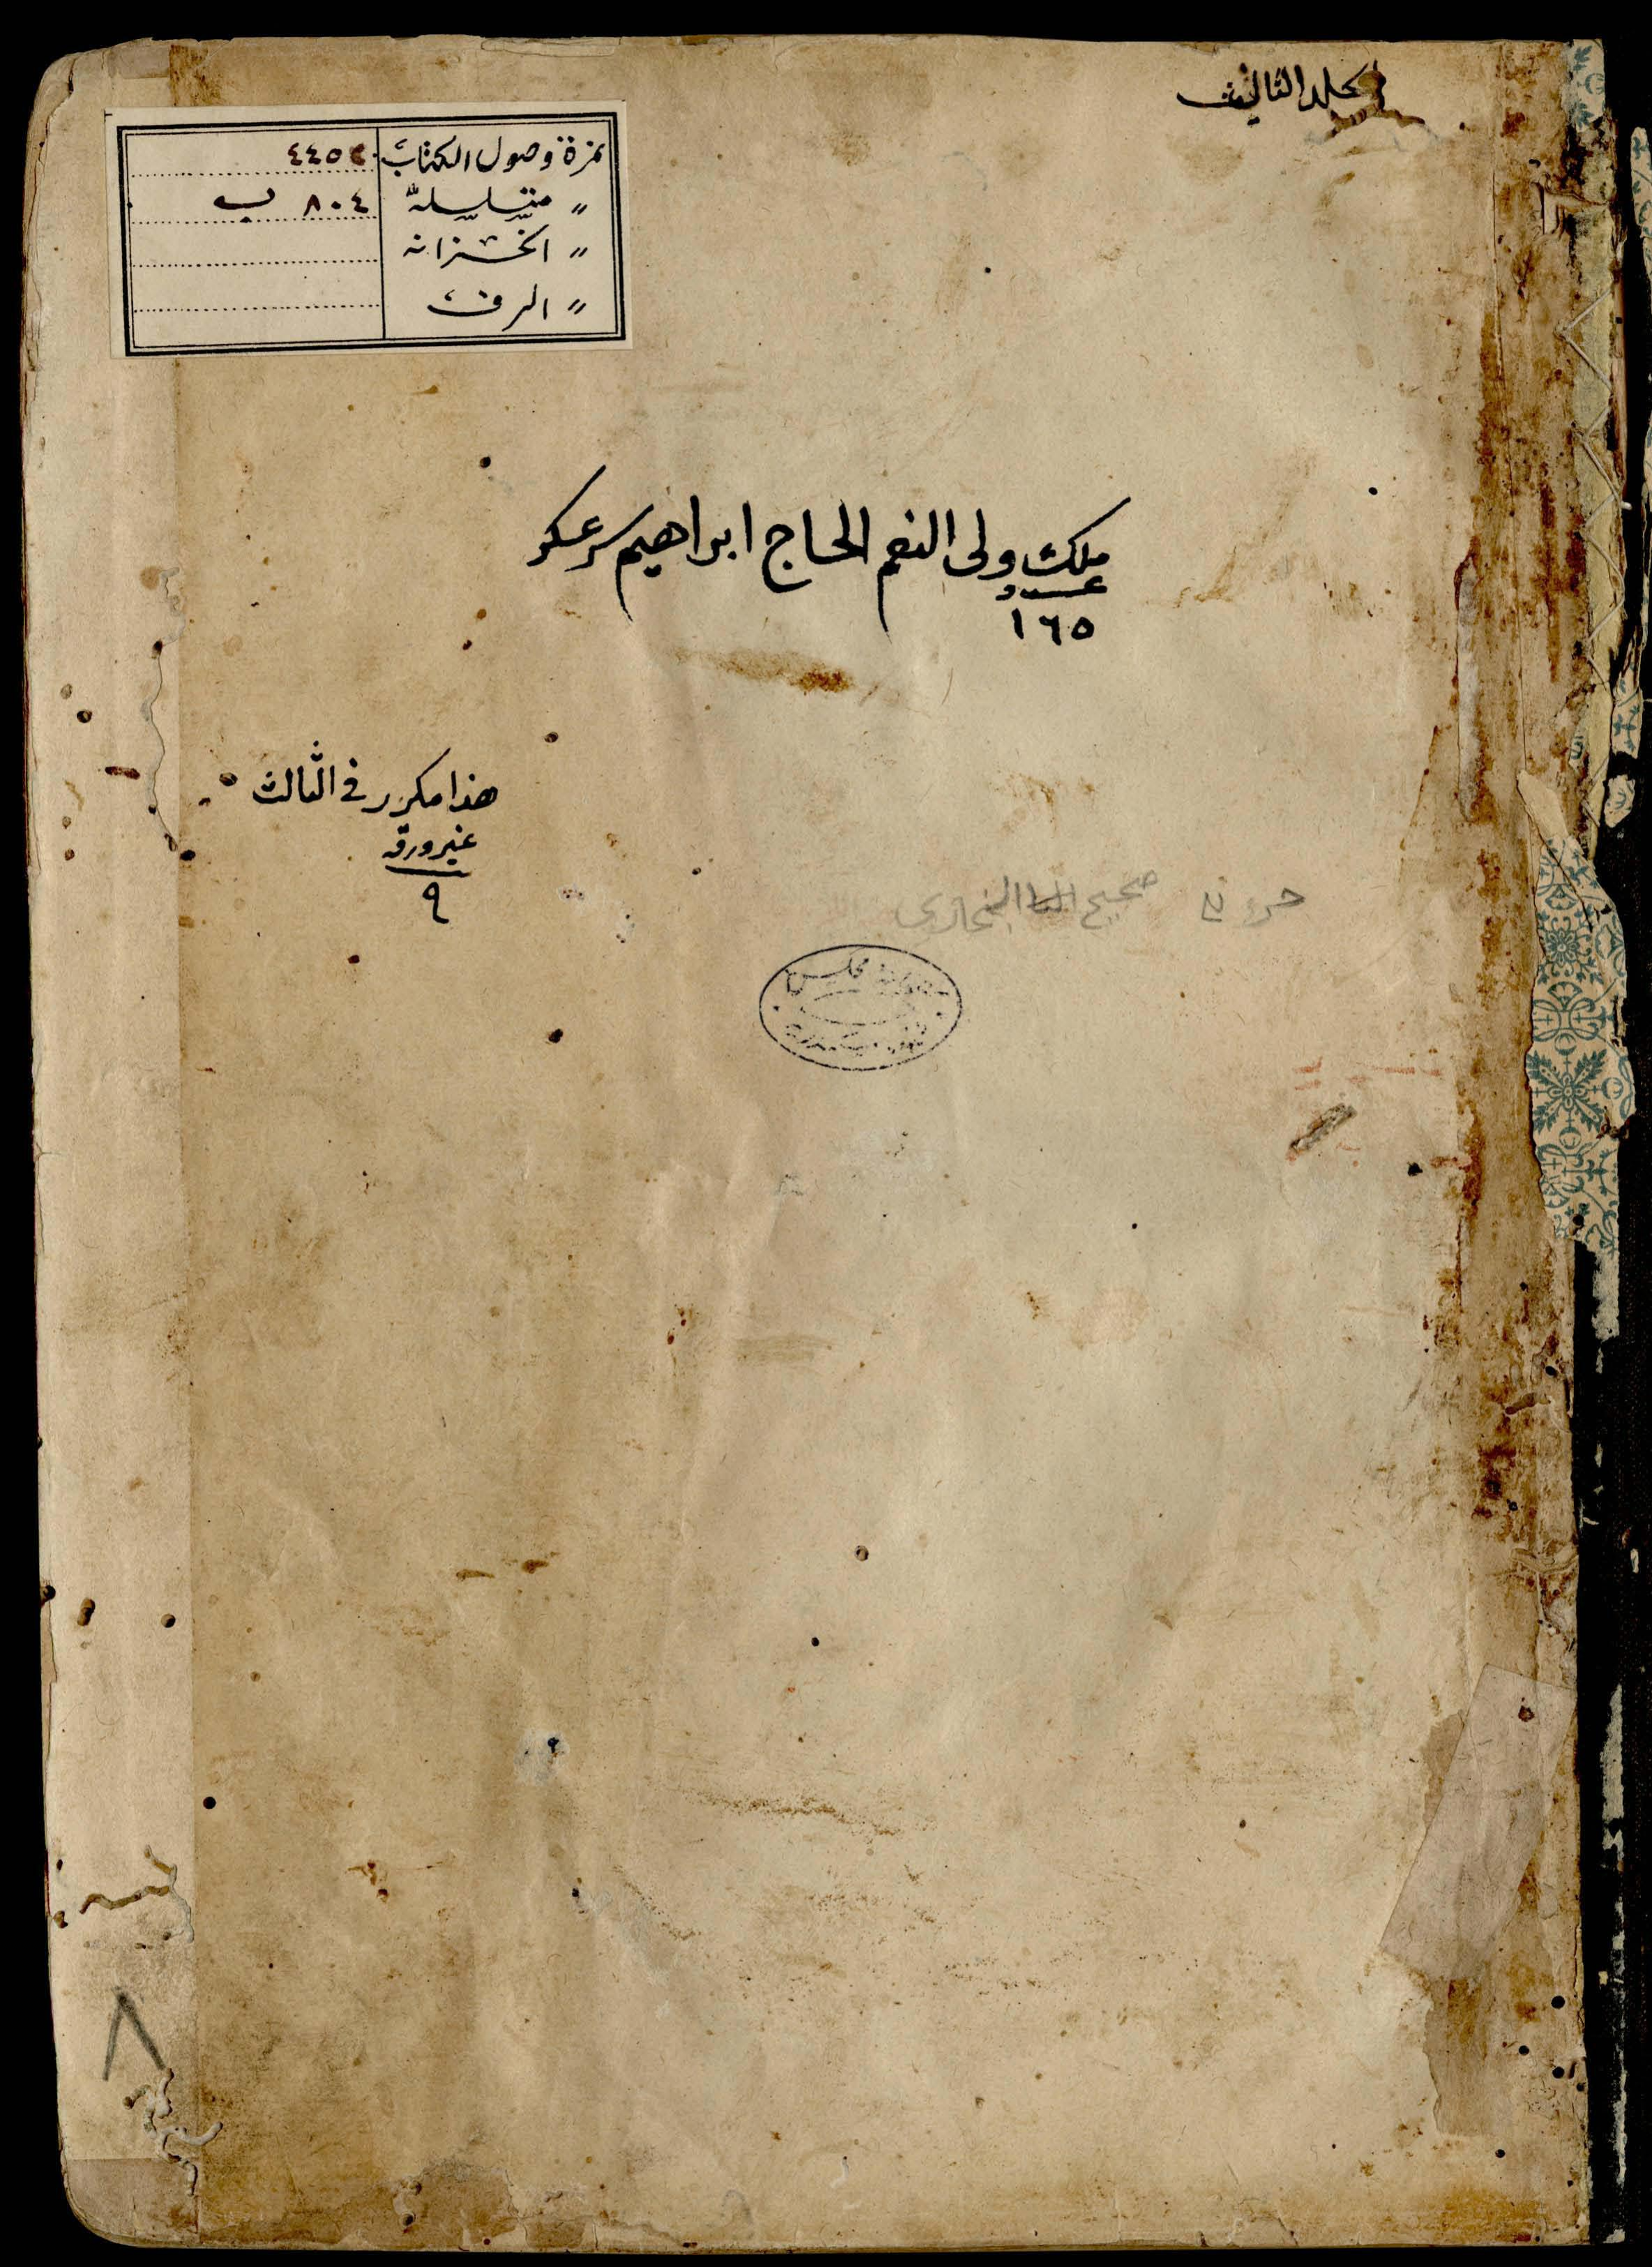 مجلد الثالث
نمرة وصول الكتاب ٤٤٥٢
〃 متسلسلة ٨٠٤ ب
〃 الخزانة
〃 الرف
ملك ولى النعم الحاج ابراهيم سرعسكر
عدد
١٦٥
هذا مكرر فى الثالث
غير ورقة
٩
صحيح البخارى
٨